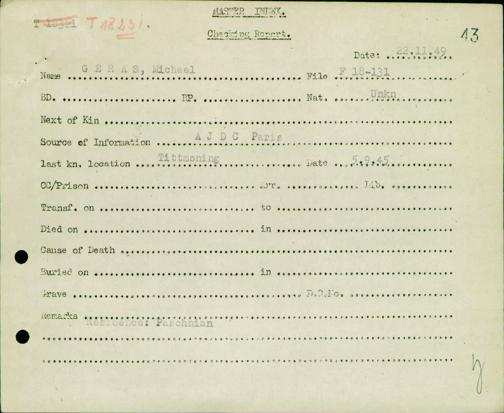 MASTER INDEX.
T 18231.
43
Checking Report.
Date: 22.11.49
Name G E R A S, Michael File F 18-131
BD. BP. Nat. Unkn
Next of Kin
Source of Information A J D C Paris
last kn. location Tittmoning Date 5.9.45
CC/Prison Arr. Lib.
Transf. on to
Died on in
Cause of Death
Buried on in
Grave D.C.No.
Remarks Residence: Paschnian